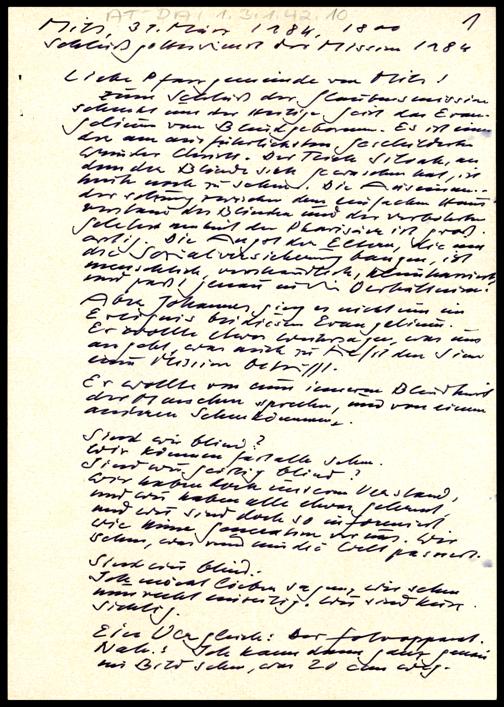 AT-DA, 1.3.1.42.10
1
Mils, 31. März 1984, 18 00
Schlußgottesdienst der Mission 1984
Liebe Pfarrgemeinde von Mils!
Zum Schluß der Glaubensmission
schenkt uns der Heilige Geist das Evan-
gelium vom Blindgeborenen. Es ist eines
der am ausführlichsten geschilderten
Wunder Christi. Der Teich Siloah, an
dem der Blinde sich gewaschen hat, ist
heute noch zu sehen. Die Auseinan-
dersetzung zwischen dem einfachen Haus-
verstand des Blinden und der verbohrten
Gelehrsamkeit der Pharisäer ist groß-
artig. Die Angst der Eltern, die um
die Sozialversicherung bangen, ist
menschlich, verständlich,
und paßt genau in die Verhältnisse.
Aber Johannes ging es nicht um ein
Ereignis bei diesem Evangelium.
Er wollte etwas aussagen, was uns
angeht, was auch zutiefst den Sinn
einer Mission betrifft.
Er wollte von einer inneren Blindheit
der Menschen sprechen, und von einem
anderen Sehenkönnen.
Sind wir blind?
Wir können fast alle sehen.
Sind wir geistig blind?
Wir haben doch unseren Verstand,
und wir haben alle etwas gelernt,
und wir sind doch so informiert
wie keine Generation vor uns. Wir
sehen, was rund um die Welt passiert.
Sind wir blind.
Ich möchte lieber sagen, wir sehen
nur recht einseitig. Wir sind kurz-
sichtig.
Ein Vergleich: Der Fotoapparat.
Nah: Ich kann dann ganz genau
im Bild sehen, was 20 cm weg-